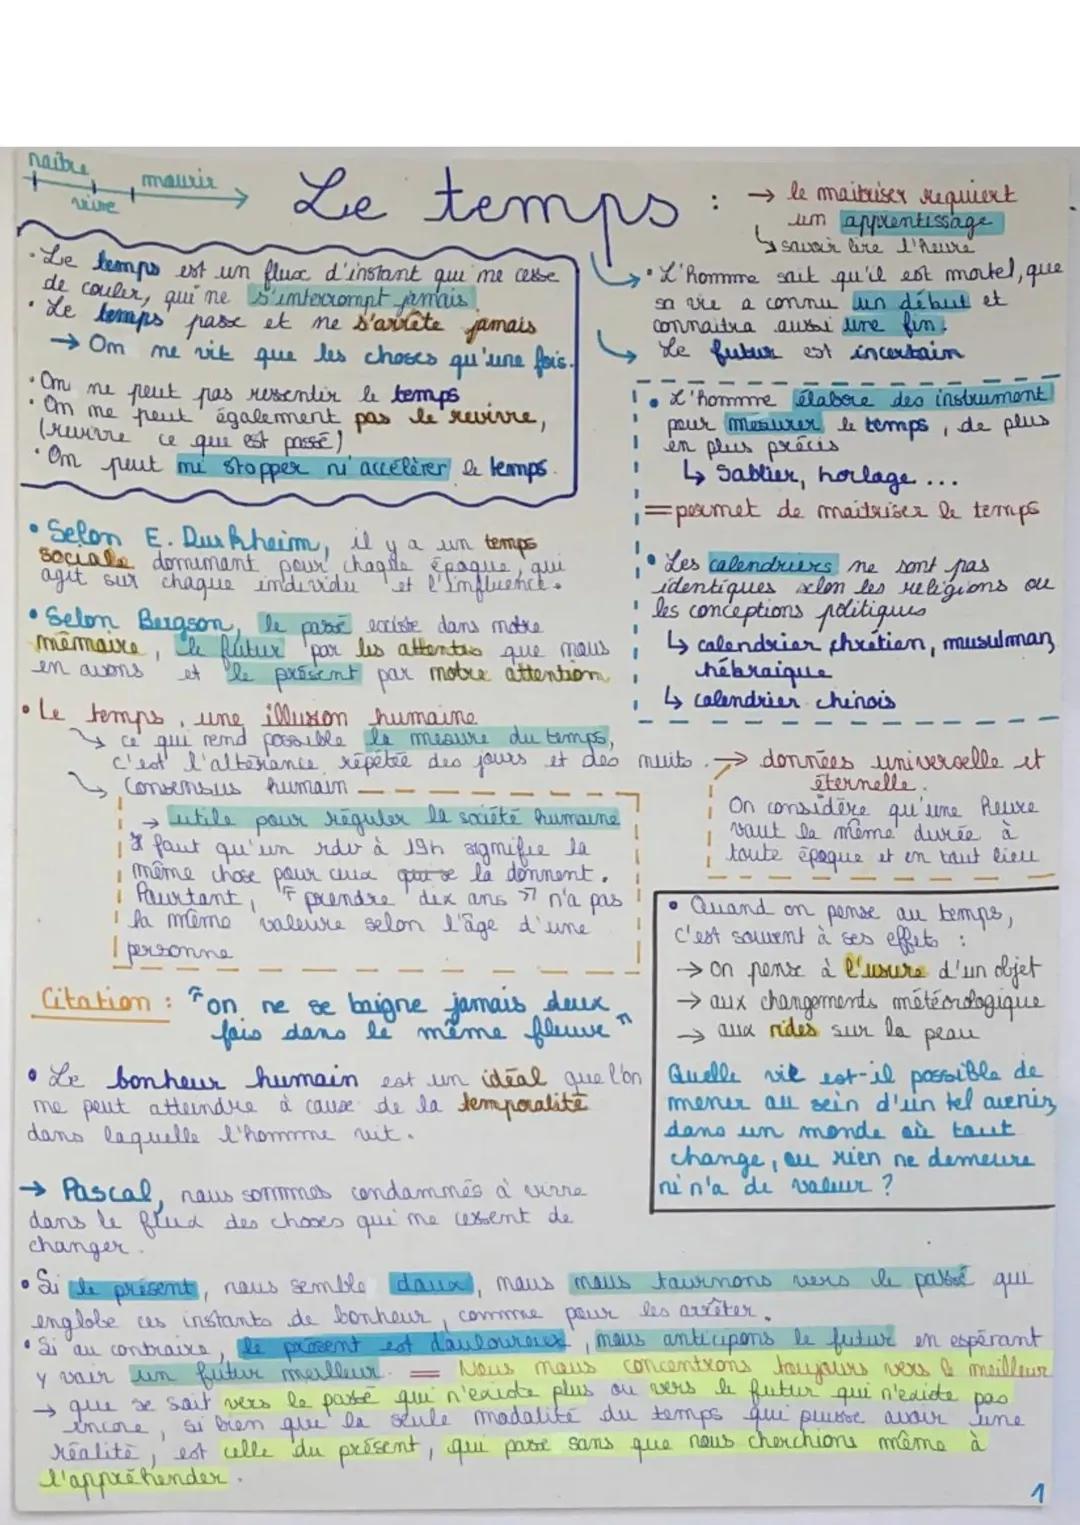 naître
vivre
mourir
Le temps :
→ le maitriser requiert
un apprentissage
↳ savoir lire l'heure
• L'homme sait qu'il est mortel, que
sa vie a connu un début et
connaitra aussi une fin.
Le futur est incertain
• Le temps est un flux d'instant qui ne cesse
de couler, qui ne s'interrompt jamais
• Le temps passe et ne s'arrête jamais
→ On ne vit que les choses qu'une fois.
• On ne peut pas resentir le temps
• On ne peut également pas le revivre,
(revivre ce que est passé)
• On peut ni stopper ni accélérer le temps.
• L'homme élabore des instrument
pour mesurer le temps, de plus
en plus précis
↳ Sablier, horlage ...
= permet de maitriser le temps
• Les calendriers ne sont pas
identiques selon les religions ou
les conceptions politiques
↳ calendrier chrétien, musulman,
hébraique
↳ calendrier chinois
• Selon E. Durkheim, il y a un temps
sociale dominant pour chaque époque, qui
agit sur chaque individu et l'influence.
• Selon Bergson, le passé existe dans notre
mémoire, le futur par les attentes que nous
en avons et le présent par notre attention
• Le temps, une illusion humaine
↳ ce qui rend possible la mesure du temps,
c'est l'alternance répétée des jours et des nuits.
→ données universelle et
éternelle.
On considère qu'une heure
vaut la même durée à
toute époque et en tout lieu
↳ Consensus humain
→ utile pour réguler la société humaine
Il faut qu'un rdv à 19h signifie la
même chose pour ceux qui se la donnent.
Pourtant, " prendre dix ans " n'a pas
la même valeure selon l'âge d'une
personne
• Quand on pense au temps,
c'est souvent à ses effets :
→ on pense à l'usure d'un objet
→ aux changements météorologique
→ aux rides sur la peau
Quelle vie est-il possible de
mener au sein d'un tel avenir,
dans un monde où tout
change, ou rien ne demeure
ni n'a de valeur ?
Citation : " on ne se baigne jamais deux
fois dans le même fleuve "
• Le bonheur humain est un idéal que l'on
ne peut atteindre à cause de la temporalité
dans laquelle l'homme vit.
→ Pascal, nous sommes condamnés à vivre
dans le flux des choses qui ne cessent de
changer.
• Si le présent, nous semble doux, nous nous tournons vers le passé qui
englobe ces instants de bonheur, comme pour les arrêter.
• Si au contraire, le présent est douloureux, nous anticipons le futur en espérant
y voir un futur meilleur. = Nous nous concentrons toujours vers le meilleur
→ que se soit vers le passé qui n'existe plus ou vers le futur qui n'existe pas
encore, si bien que la seule modalité du temps qui puisse avoir une
réalité, est celle du présent, qui passe sans que nous cherchions même à
l'appréhender.
1